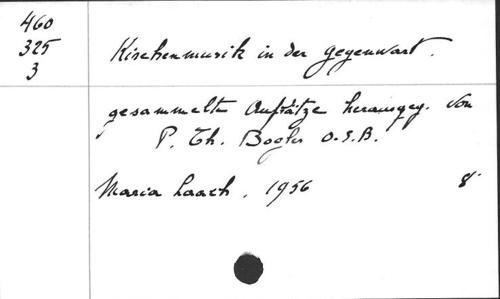 460
325
3
Kirchenmusik in der Gegenwart.
gesammelte Aufsätze herausgeg. von
P. Th. Bogler O.S.B.
Maria Laach, 1956 8°